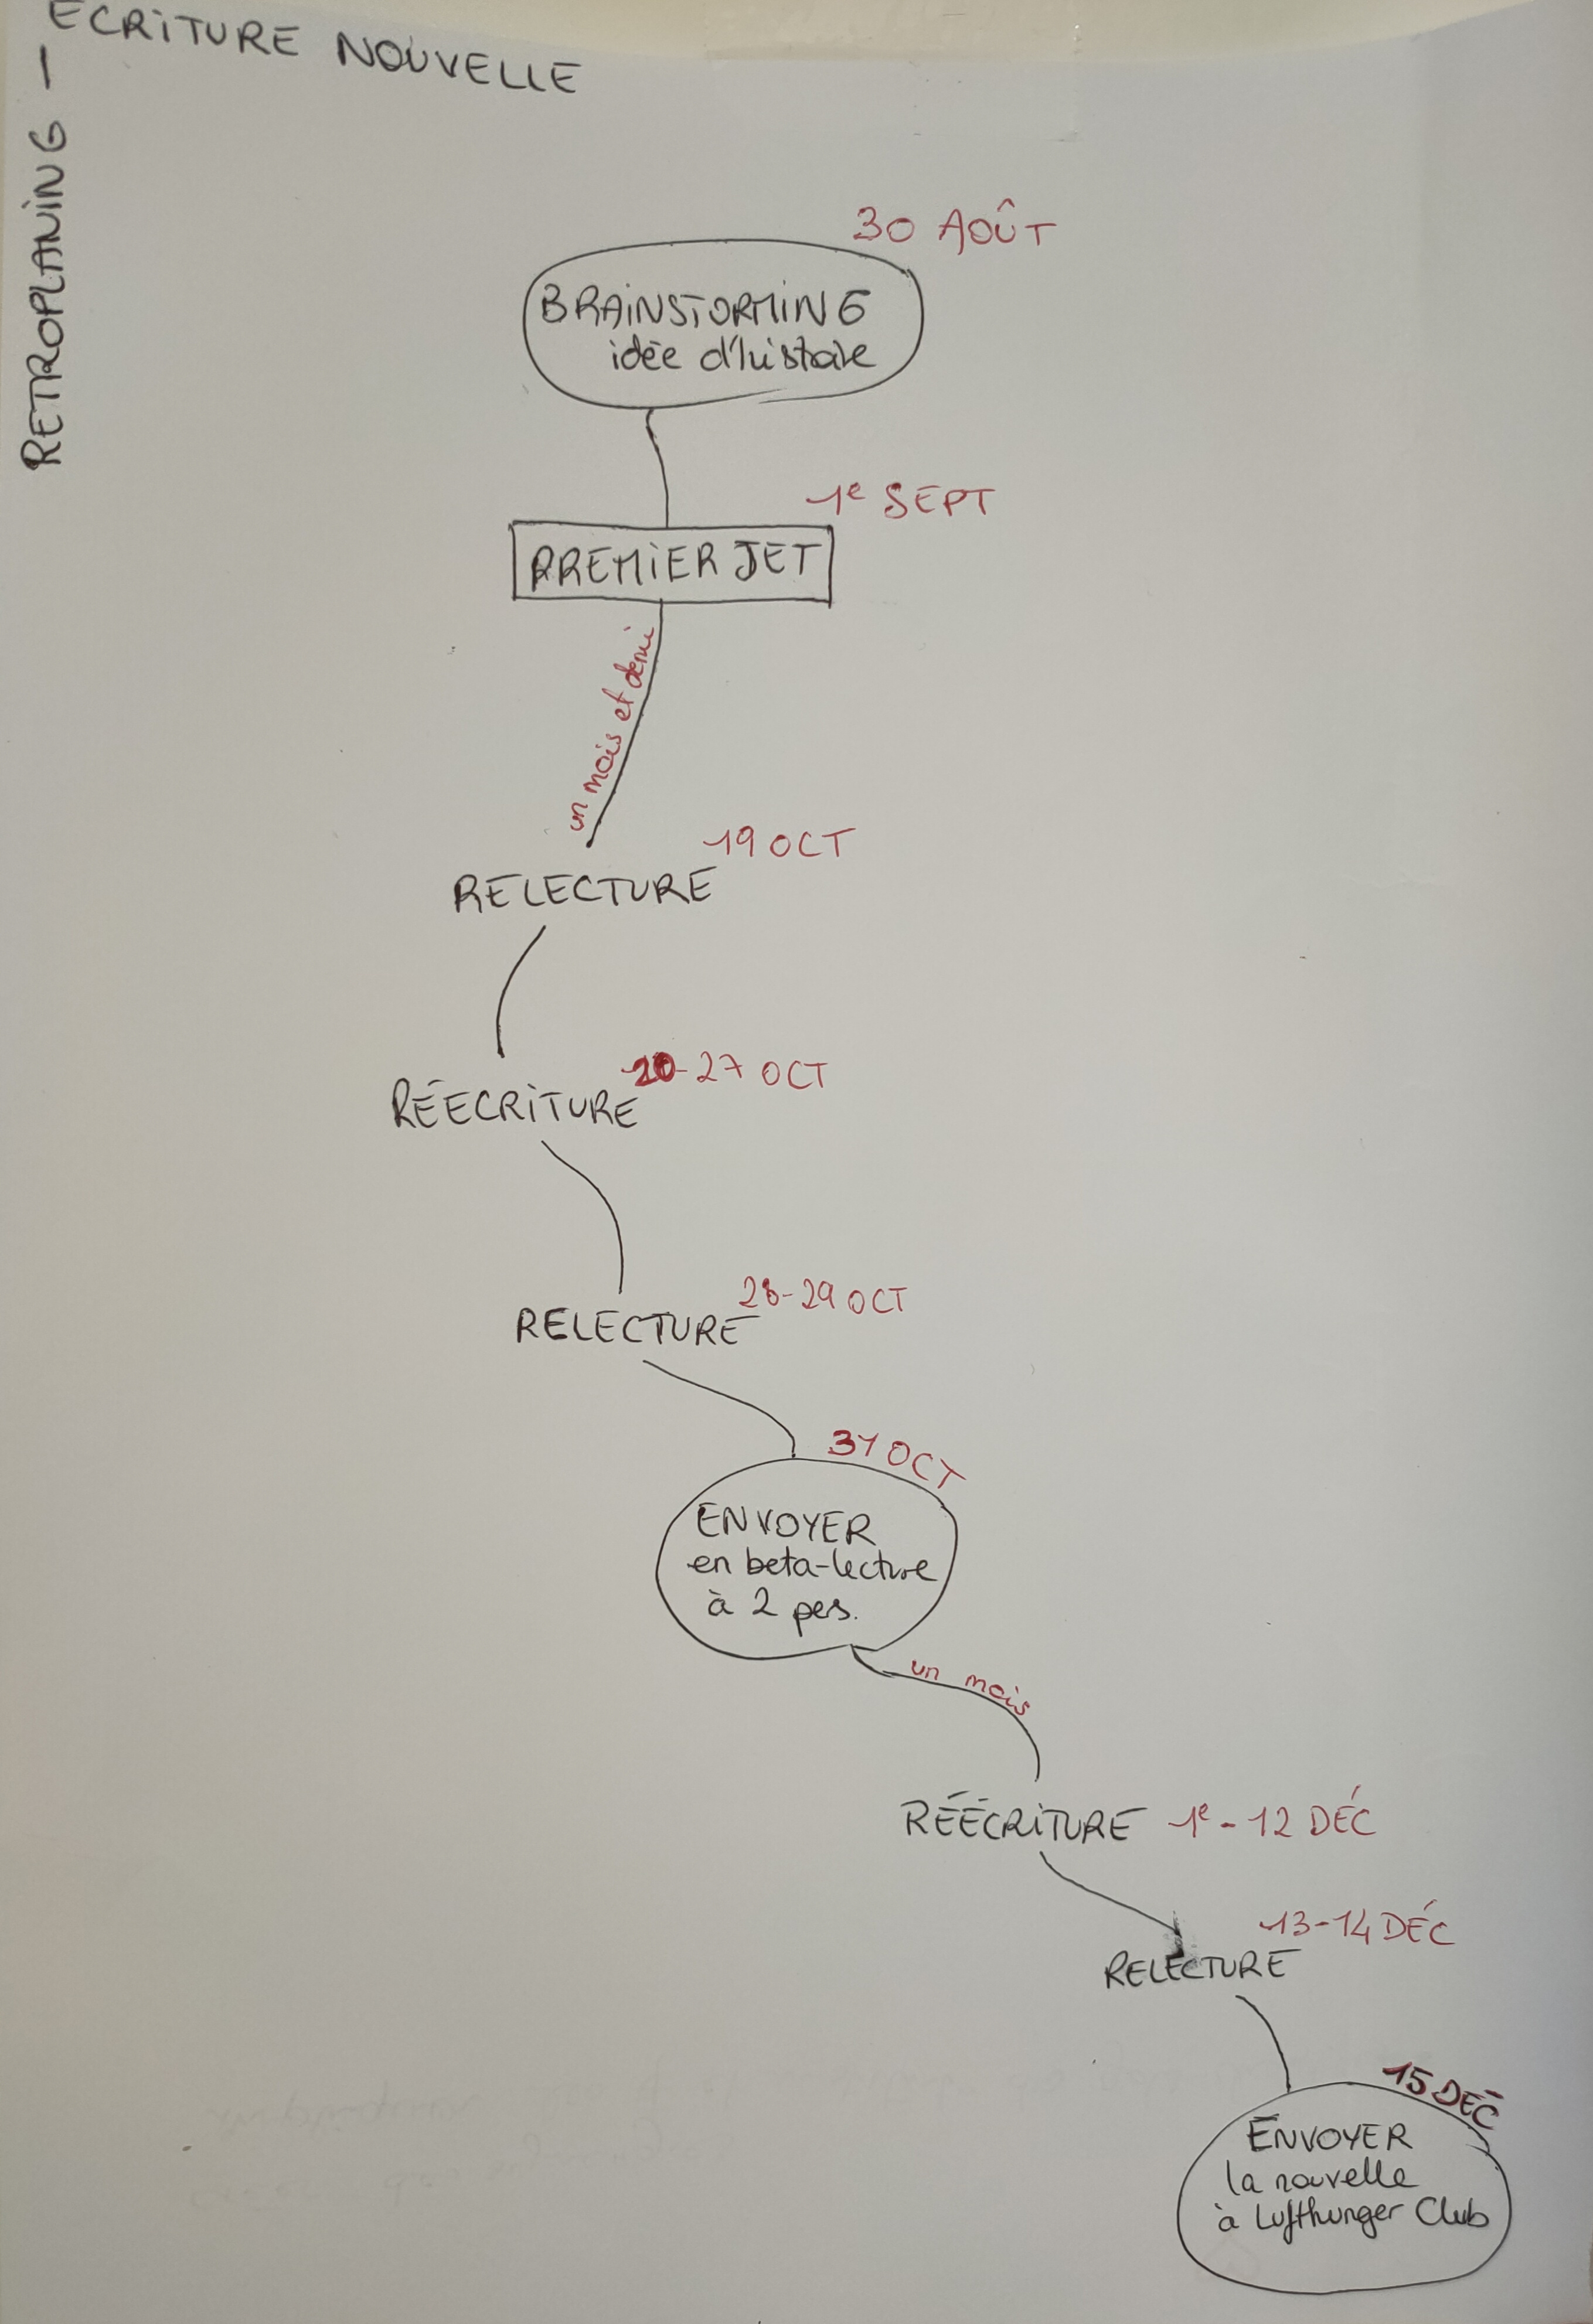 RETROPLANING - ECRITURE NOUVELLE
30 AOÛT
BRAINSTORMING
idée d'histoire
1e SEPT
PREMIER JET
un mois et demi
19 OCT
RELECTURE
20-27 OCT
RÉECRITURE
28-29 OCT
RELECTURE
31 OCT
ENVOYER
en beta-lecture
à 2 pers.
un mois
RÉÉCRITURE 1e - 12 DÉC
13-14 DÉC
RELECTURE
15 DÉC
ENVOYER
la nouvelle
à Lufthunger Club